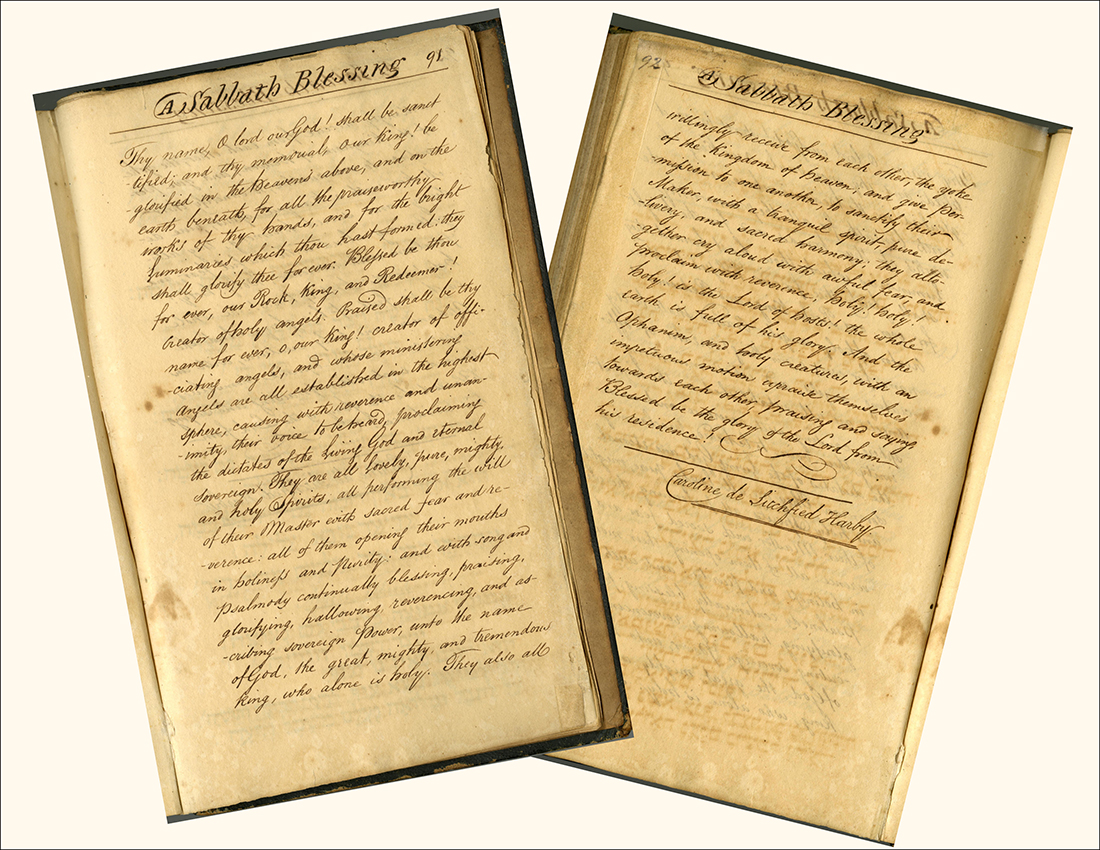 A Sabbath Blessing 91
Thy name, O lord our God! shall be sanct
tified; and thy memorial, our King! be
glorified in the heavens above, and on the
earth beneath, for all the praiseworthy
works of thy hands, and for the bright
luminaries which thou hast formed: they
shall glorify thee for ever. Blessed be thou
for ever, our Rock, King, and Redeemer!
Creator of holy angels. Praised shall be thy
name for ever, o, our King! creator of offi-
-ciating angels, and whose ministering
angels are all established in the highest
sphere, causing with reverence and unan-
-imity, their voice to be heard, proclaiming
the dictates of the living God and eternal
sovereign. They are all lovely, pure, mighty,
and holy Spirits, all performing the will
of their Master with sacred fear and re-
-verence: all of them opening their mouths
in holiness and Purity: and with song and
psalmody continually blessing, praising,
glorifying, hallowing, reverencing, and as-
-cribing sovereign Power, unto the name
of God, the great, mighty, and tremendous
king, who alone is holy. They also all
92 A Sabbath Blessing
willingly receive from each other, the yoke
of the Kingdom of heaven, and give per-
-mission to one another to sanctify their
Maker, with a tranquil spirit, pure de-
-livery, and sacred harmony: they alto-
gether cry aloud with awful fear, and
proclaim with reverence, holy! holy!
holy! is the Lord of hosts! the whole
earth is full of his glory. And the
Ophanim, and holy creatures, with an
impetuous motion upraise themselves
towards each other, praising and saying
Blessed be the glory of the Lord from
his residence!
Caroline de Litchfied Harby